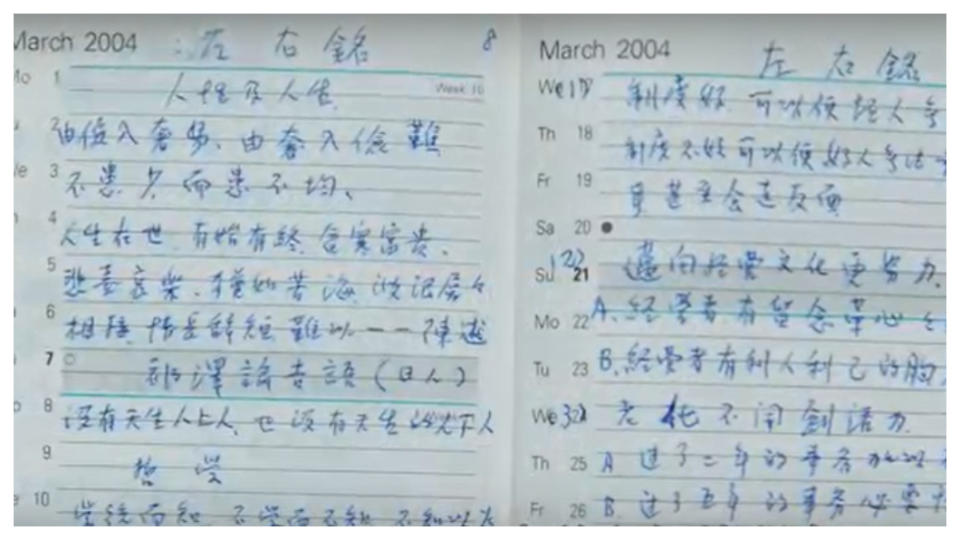 March 2004 左右銘 8
Mo 1 人性及人生 Week 10
2 由儉入奢易、由奢入儉難
3 不患少而患不均、
4 人生在世 有始有終 貧寒富貴、
5 悲喜哀樂、猶如苦海 波浪層々
6 相陸 情長辭短 難以一一陳述
7 福澤諭吉語(日人)
8 沒有天生人上人、也沒有天生 人下人
9 哲學
10 學後而知 不學而不知
March 2004 左右銘
We 17 制度好 可以使 人
Th 18 制度不好可以使好人 法
Fr 19 甚至会走反面
Sa 20
Su 21 (2) 邁向經營文化更努力
Mo 22 A、經營者有留念 心
Tu 23 B、經營者有利人利己的胸
We 24 3) 老化不開創活力
Th 25 A 过了二年的事务
Fr 26 B. 过了五年的事务必要